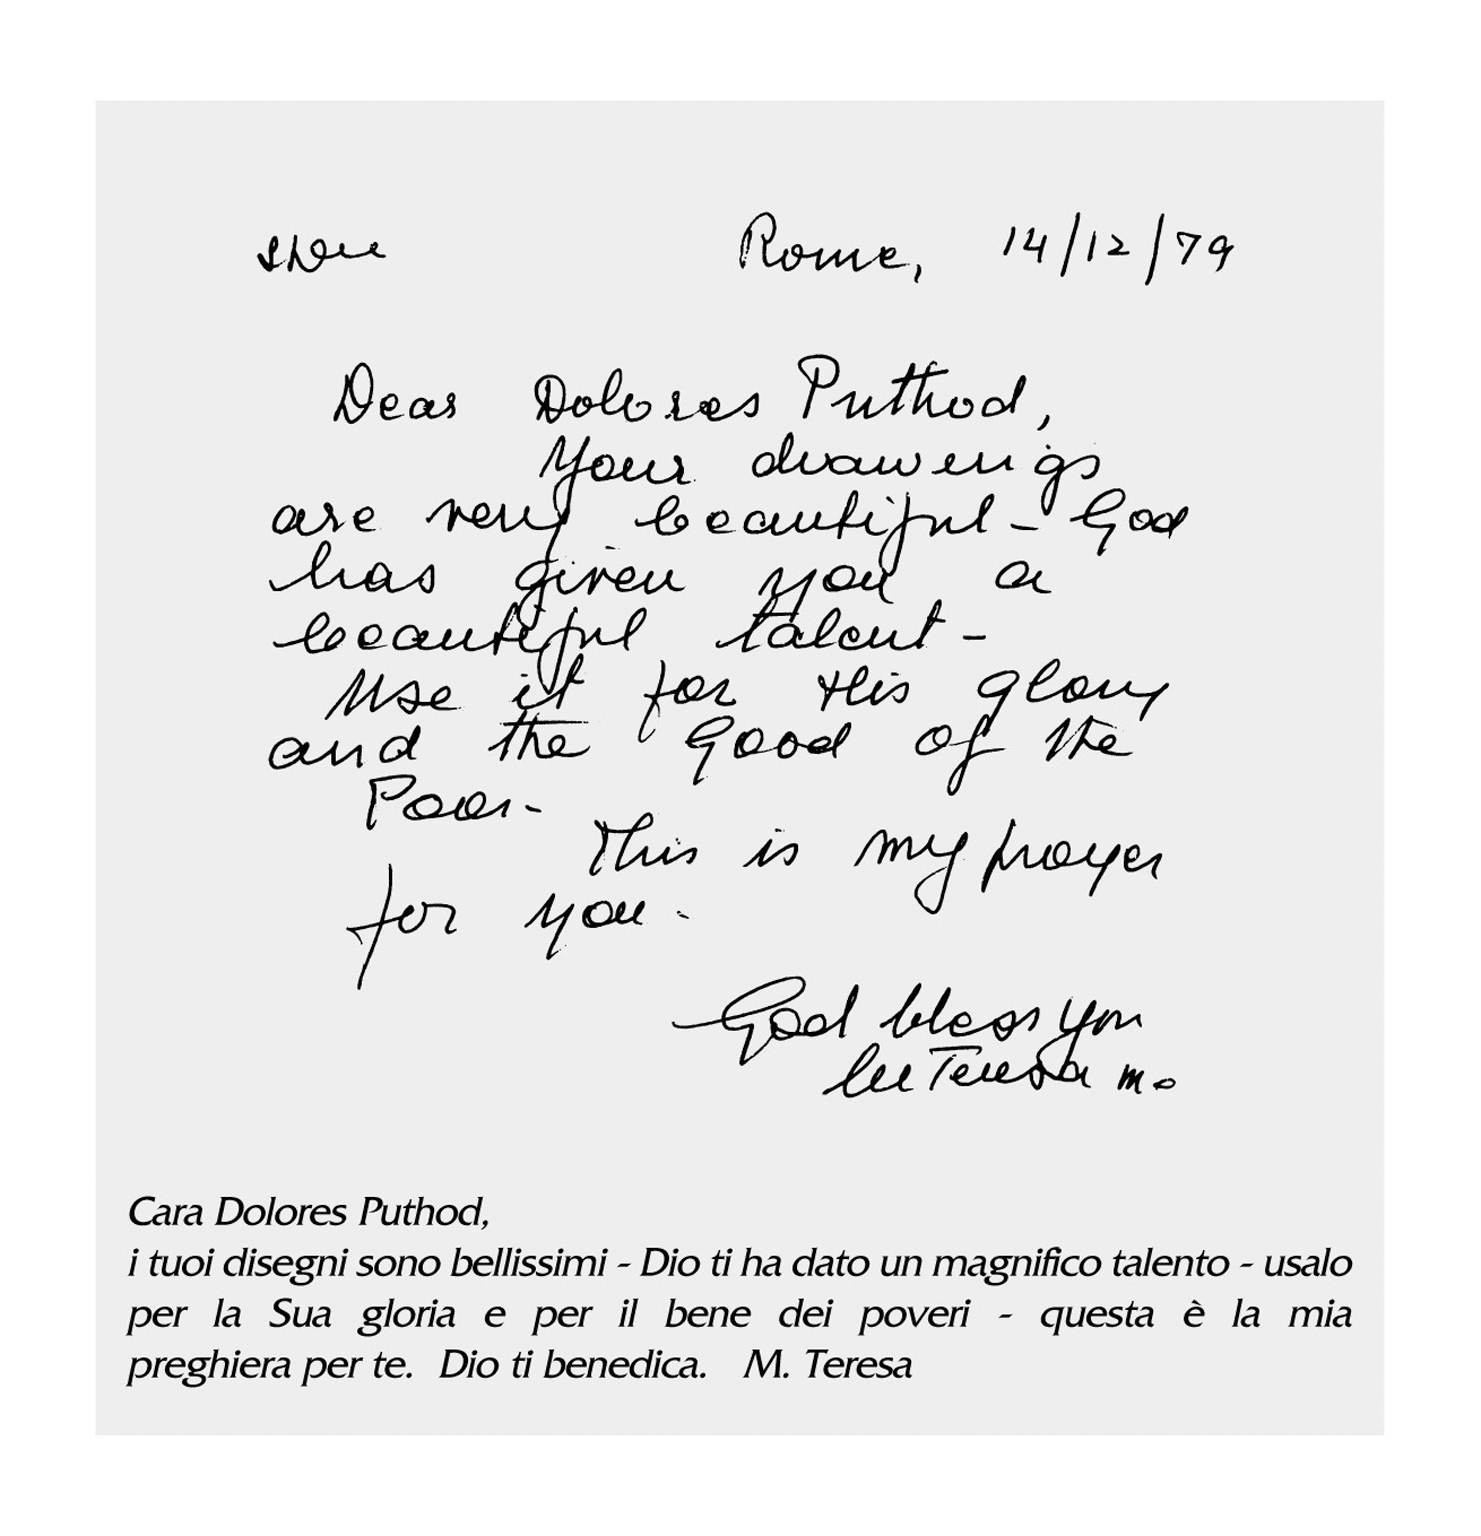 Rome, 14/12/79
Dear Dolores Puthod,
Your drawings
are very beautiful - God
has given you a
beautiful talent -
Use it for His glory
and the Good of the
Poor -
This is my prayer
for you.
God bless you
Teresa mc
Cara Dolores Puthod,
i tuoi disegni sono bellissimi - Dio ti ha dato un magnifico talento - usalo
per la Sua gloria e per il bene dei poveri - questa è la mia
preghiera per te. Dio ti benedica. M. Teresa